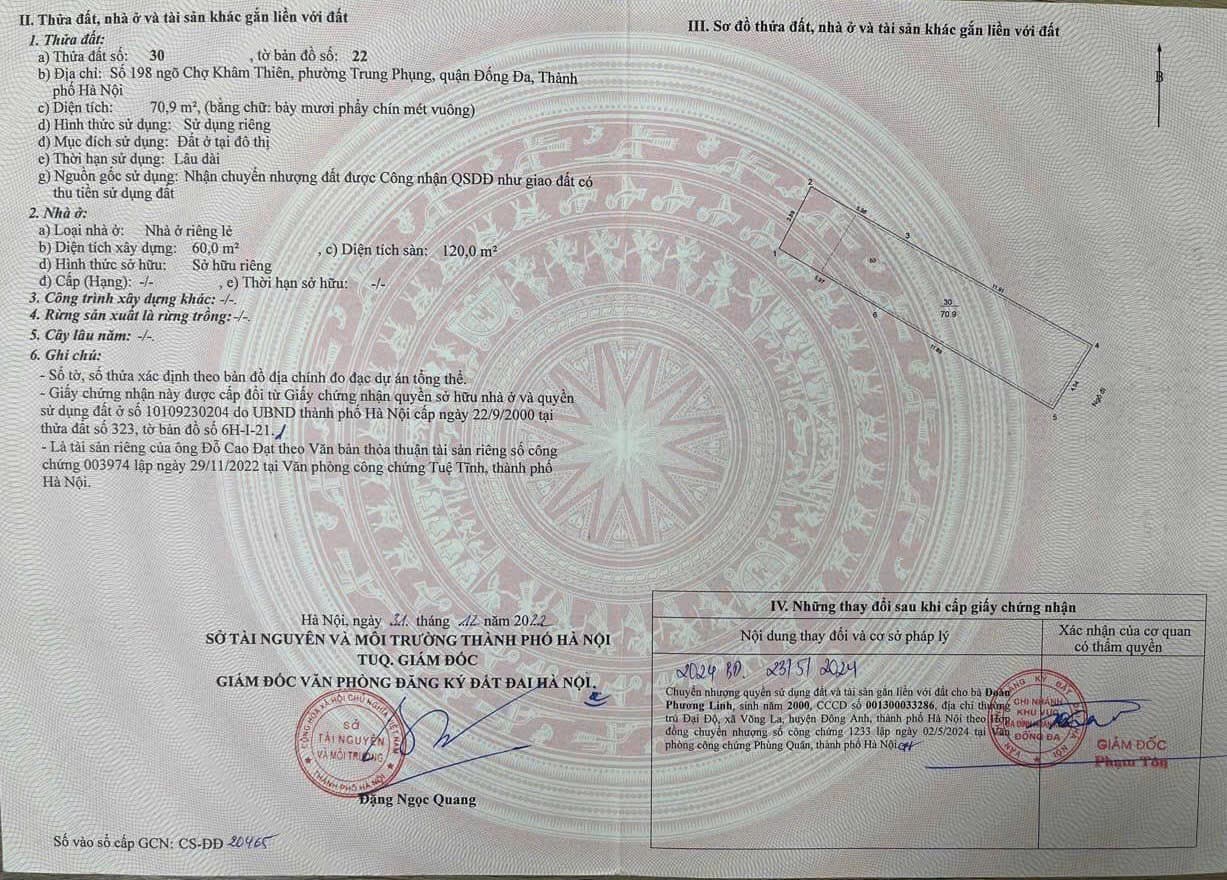 II. Thửa đất, nhà ở và tài sản khác gắn liền với đất
1. Thửa đất:
a) Thửa đất số: 30 , tờ bản đồ số: 22
b) Địa chỉ: Số 198 ngõ Chợ Khâm Thiên, phường Trung Phụng, quận Đống Đa, Thành
phố Hà Nội
c) Diện tích: 70,9 m², (bằng chữ: bảy mươi phẩy chín mét vuông)
d) Hình thức sử dụng: Sử dụng riêng
đ) Mục đích sử dụng: Đất ở tại đô thị
e) Thời hạn sử dụng: Lâu dài
g) Nguồn gốc sử dụng: Nhận chuyển nhượng đất được Công nhận QSDĐ như giao đất có
thu tiền sử dụng đất
2. Nhà ở:
a) Loại nhà ở: Nhà ở riêng lẻ
b) Diện tích xây dựng: 60,0 m² , c) Diện tích sàn: 120,0 m²
d) Hình thức sở hữu: Sở hữu riêng
đ) Cấp (Hạng): -/- , e) Thời hạn sở hữu: -/-
3. Công trình xây dựng khác: -/-.
4. Rừng sản xuất là rừng trồng: -/-.
5. Cây lâu năm: -/-.
6. Ghi chú:
- Số tờ, số thửa xác định theo bản đồ địa chính đo đạc dự án tổng thể.
- Giấy chứng nhận này được cấp đổi từ Giấy chứng nhận quyền sở hữu nhà ở và quyền
sử dụng đất ở số 10109230204 do UBND thành phố Hà Nội cấp ngày 22/9/2000 tại
thửa đất số 323, tờ bản đồ số 6H-I-21.
- Là tài sản riêng của ông Đỗ Cao Đạt theo Văn bản thỏa thuận tài sản riêng số công
chứng 003974 lập ngày 29/11/2022 tại Văn phòng công chứng Tuệ Tĩnh, thành phố
Hà Nội.
Hà Nội, ngày 31 tháng 12 năm 2022
SỞ TÀI NGUYÊN VÀ MÔI TRƯỜNG THÀNH PHỐ HÀ NỘI
TUQ. GIÁM ĐỐC
GIÁM ĐỐC VĂN PHÒNG ĐĂNG KÝ ĐẤT ĐAI HÀ NỘI
CỘNG HÒA XÃ HỘI CHỦ NGHĨA VIỆT NAM
SỞ
TÀI NGUYÊN
VÀ MÔI TRƯỜNG
THÀNH PHỐ HÀ NỘI
Đặng Ngọc Quang
Số vào sổ cấp GCN: CS-ĐĐ 20465
III. Sơ đồ thửa đất, nhà ở và tài sản khác gắn liền với đất
B
2
3
1
60
30
70.9
6
4
5
Ngõ đi
IV. Những thay đổi sau khi cấp giấy chứng nhận
Nội dung thay đổi và cơ sở pháp lý
Xác nhận của cơ quan
có thẩm quyền
2024 BĐ. 23/5/2024
Chuyển nhượng quyền sử dụng đất và tài sản gắn liền với đất cho bà Đoàn
Phương Linh, sinh năm 2000, CCCD số 001300033286, địa chỉ thường
trú Đại Độ, xã Võng La, huyện Đông Anh, thành phố Hà Nội theo Hợp
đồng chuyển nhượng số công chứng 1233 lập ngày 02/5/2024 tại Văn
phòng công chứng Phùng Quân, thành phố Hà Nội
CHI NHÁNH
KHU VỰC
ĐỐNG ĐA
GIÁM ĐỐC
Phạm Tôn